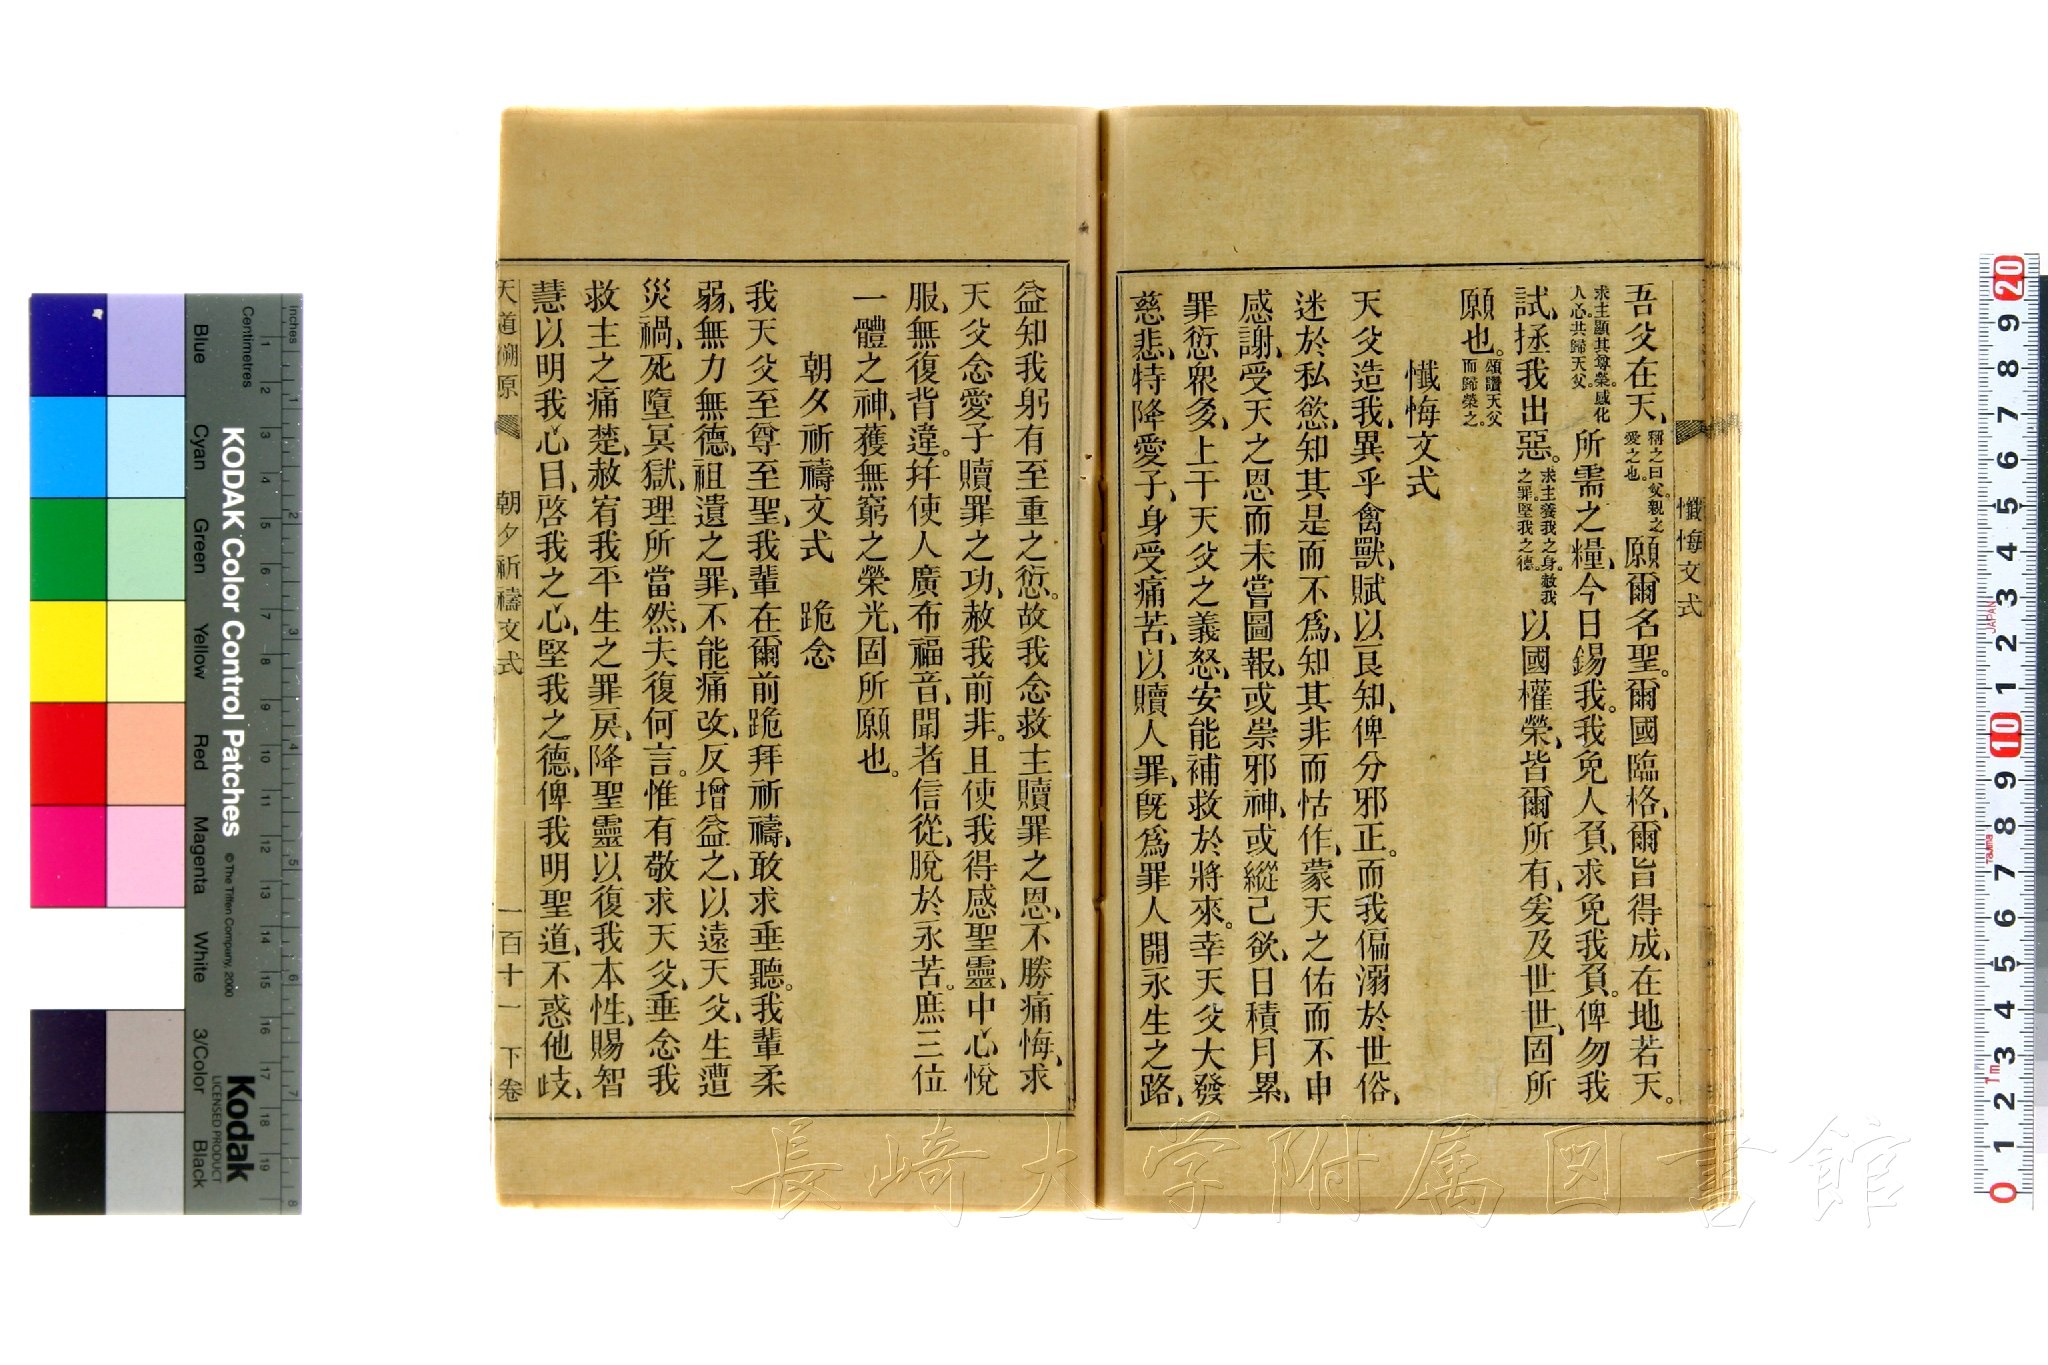 懺悔文式
吾父在天、稱之曰父、親之愛之也。願爾名聖。爾國臨格、爾旨得成、在地若天。
求主顯其尊榮。感化人心。共歸天父。所需之糧、今日錫我。我免人負、求免我負。俾勿我
試、拯我出惡。求主養我之身。赦我之罪。堅我之德。以國權榮、皆爾所有、爰及世世、固所
願也。頌讚天父而歸榮之。
懺悔文式
天父造我、異乎禽獸、賦以良知、俾分邪正。而我偏溺於世俗、
迷於私慾、知其是而不爲、知其非而怙作、蒙天之佑而不申
感謝、受天之恩而未嘗圖報、或崇邪神、或縱己欲、日積月累、
罪愆衆多、上干天父之義怒、安能補救於將來。幸天父大發
慈悲、特降愛子、身受痛苦、以贖人罪、旣爲罪人開永生之路、
益知我躬有至重之愆。故我念救主贖罪之恩、不勝痛悔、求
天父念愛子贖罪之功、赦我前非。且使我得感聖靈、中心悅
服、無復背違。幷使人廣布福音、聞者信從、脫於永苦。庶三位
一體之神、獲無窮之榮光、固所願也。
朝夕祈禱文式 跪念
我天父至尊至聖、我輩在爾前跪拜祈禱、敢求垂聽。我輩柔
弱、無力無德、祖遺之罪、不能痛改、反增益之、以遠天父、生遭
災禍、死墮冥獄、理所當然、夫復何言。惟有敬求天父、垂念我
救主之痛楚、赦宥我平生之罪戾、降聖靈以復我本性、賜智
慧以明我心目、啓我之心、堅我之德、俾我明聖道、不惑他岐、
天道溯原 朝夕祈禱文式 一百十一 下卷
長崎大学附属図書館
Inches
Centimetres
KODAK Color Control Patches
© The Tiffen Company, 2000
Blue Cyan Green Yellow Red Magenta White 3/Color Black
Kodak
LICENSED PRODUCT
1 2 3 4 5 6 7 8 9 10 11 12 13 14 15 16 17 18 19
1 2 3 4 5 6 7 8
20 9 8 7 6 5 4 3 2 1 10 9 8 7 6 5 4 3 2 1 0
JAPAN
Tajima
1m